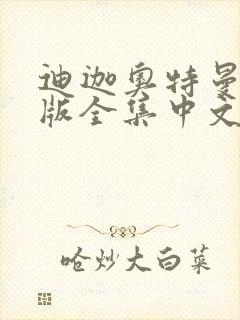 迪迦奥特曼
版全集中文
哈炒大白菜